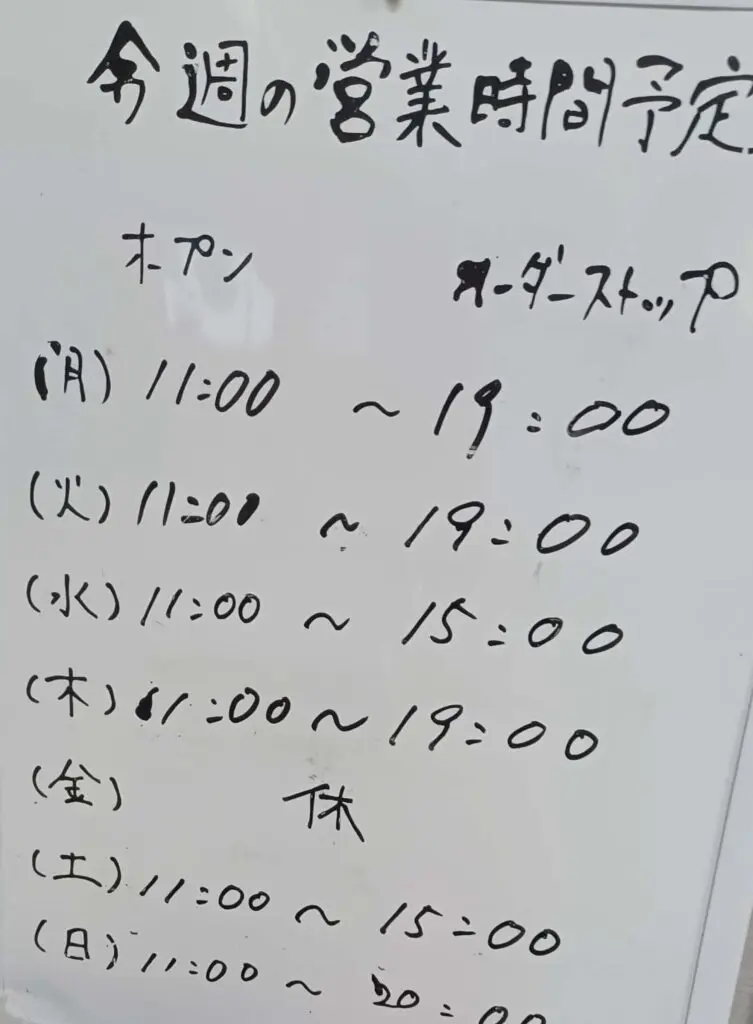 今週の営業時間予定
オープン オーダーストップ
(月) 11:00 ~ 19:00
(火) 11:00 ~ 19:00
(水) 11:00 ~ 15:00
(木) 11:00 ~ 19:00
(金) 休
(土) 11:00 ~ 15:00
(日) 11:00 ~ 20:00